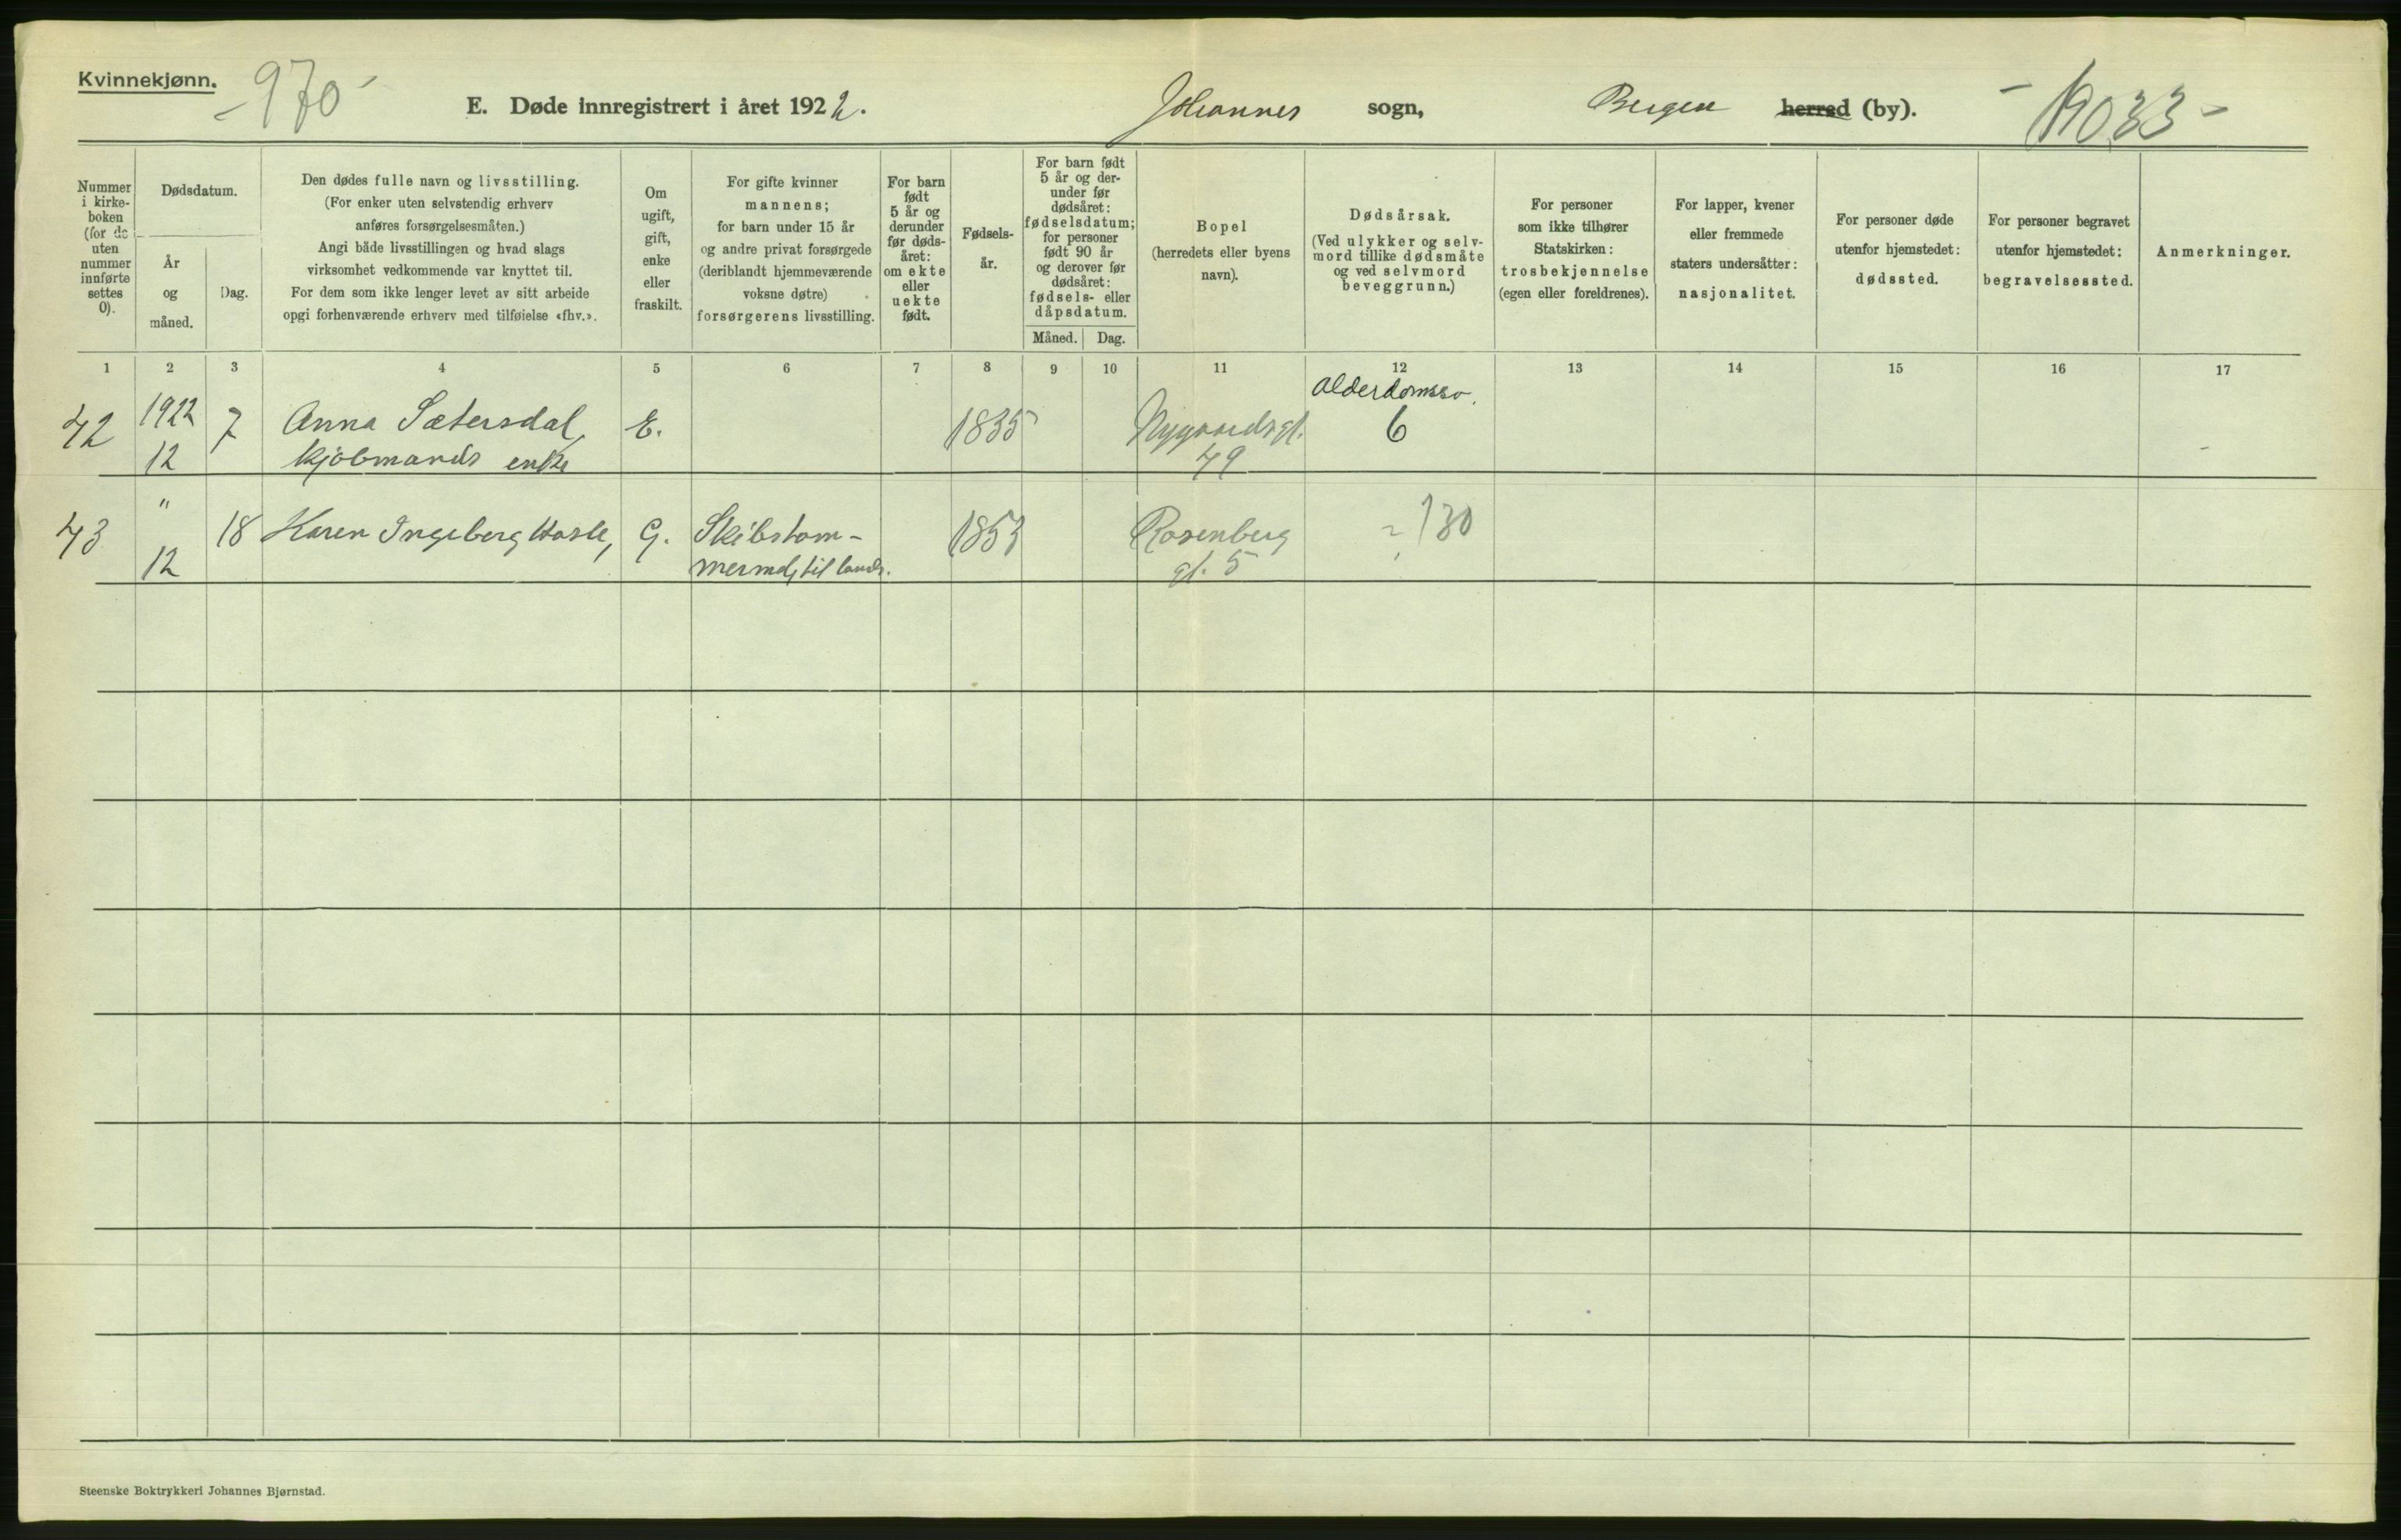 Kvinnekjønn.
- 970 -
E. Døde innregistrert i året 1922.
Johannes sogn,
Bergen herred (by).
- 19033 -
Nummer i kirke-boken (for de uten nummer innførte settes 0).
Dødsdatum.
År og måned.
Dag.
Den dødes fulle navn og livsstilling.
(For enker uten selvstendig erhverv
anføres forsørgelsesmåten.)
Angi både livsstillingen og hvad slags
virksomhet vedkommende var knyttet til.
For dem som ikke lenger levet av sitt arbeide
opgi forhenværende erhverv med tilføielse «fhv.».
Om
ugift,
gift,
enke
eller
fraskilt.
For gifte kvinner
mannens;
for barn under 15 år
og andre privat forsørgede
(deriblandt hjemmeværende
voksne døtre)
forsørgerens livsstilling.
For barn
født
5 år og
derunder
før døds-
året:
om ekte
eller
uekte
født.
Fødsels-
år.
For barn født
5 år og der-
under før
dødsåret:
fødselsdatum;
for personer
født 90 år
og derover før
dødsåret:
fødsels- eller
dåpsdatum.
Måned. Dag.
Bopel
(herredets eller byens
navn).
Dødsårsak.
(Ved ulykker og selv-
mord tillike dødsmåte
og ved selvmord
beveggrunn.)
For personer
som ikke tilhører
Statskirken:
trosbekjennelse
(egen eller foreldrenes).
For lapper, kvener
eller fremmede
staters undersåtter:
nasjonalitet.
For personer døde
utenfor hjemstedet:
dødssted.
For personer begravet
utenfor hjemstedet:
begravelsessted.
Anmerkninger.
1 2 3 4 5 6 7 8 9 10 11 12 13 14 15 16 17
42 1922 7 Anna Sætersdal, E. 1835 Nygaardsgt. Alderdomssv. 6
12 kjøbmands enke 49
43 " 18 Karen Ingeberg Hasle, G. Skibstøm- 1853 Rosenberg 130
12 mermd, til lands. gt. 5
Steenske Boktrykkeri Johannes Bjørnstad.